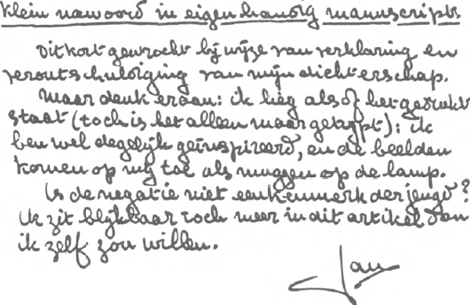 klein nawoord in eigenhandig manuscript:
Dit kort gewrocht bij wijze van verklaring en
verontschuldiging van mijn dichterschap.
Maar denk eraan: ik lieg alsof het gedrukt
staat (toch is het alleen maar getypt): ik
ben wel degelijk geïnspireerd, en de beelden
komen op mij toe als muggen op de lamp.
Is de negatie niet een kenmerk der jeugd?
Ik zit blijkbaar toch meer in dit artikel dan
ik zelf zou willen.
Jan